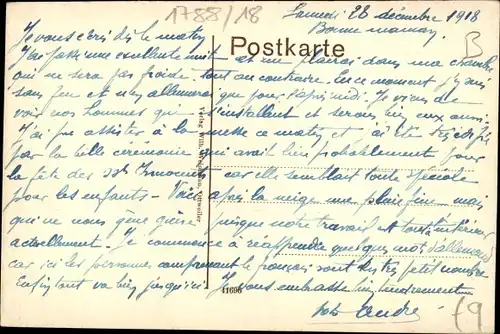 1788/18
Samedi 28 décembre 1918
Bonne maman,
B
Postkarte
Je vous écris dès le matin
J'ai passé une excellente nuit et me plairai dans ma chambre
qui ne sera pas froide tout au contraire. En ce moment j'y suis
sans feu et n'en allumerai que pour l'après midi. Je viens de
voir nos hommes qui s'installent et seront bien eux aussi.
J'ai pu assister à la messe ce matin et ai été très édifié
par la belle cérémonie qui avait lieu probablement pour
la fête des Sts Innocents car elle semblait toute spéciale
pour les enfants. Voici après la neige une pluie fine mais
qui ne nous gêne guère puisque notre travail est tout intérieur
actuellement. Je commence à réapprendre quelques mots d'allemand
car ici les personnes comprenant le français sont en très petit nombre
Enfin tout va bien jusqu'ici. Je vous embrasse bien tendrement
votre André
Verlag Wilh. Ottweiler
11696
f9